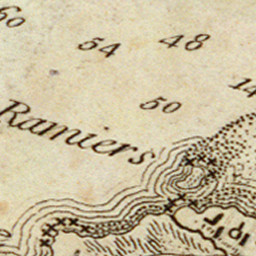 60
54
48
50
14
Ramiers